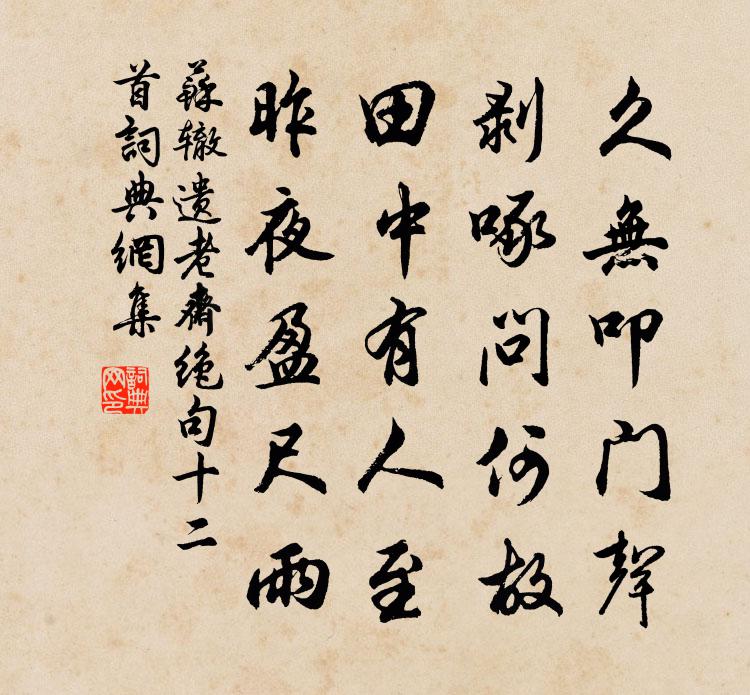 久無叩门聲
剥啄問何故
田中有人至
昨夜盈尺雨
蘇辙遗老齋绝句十二
首詞典網集
詞典
网印